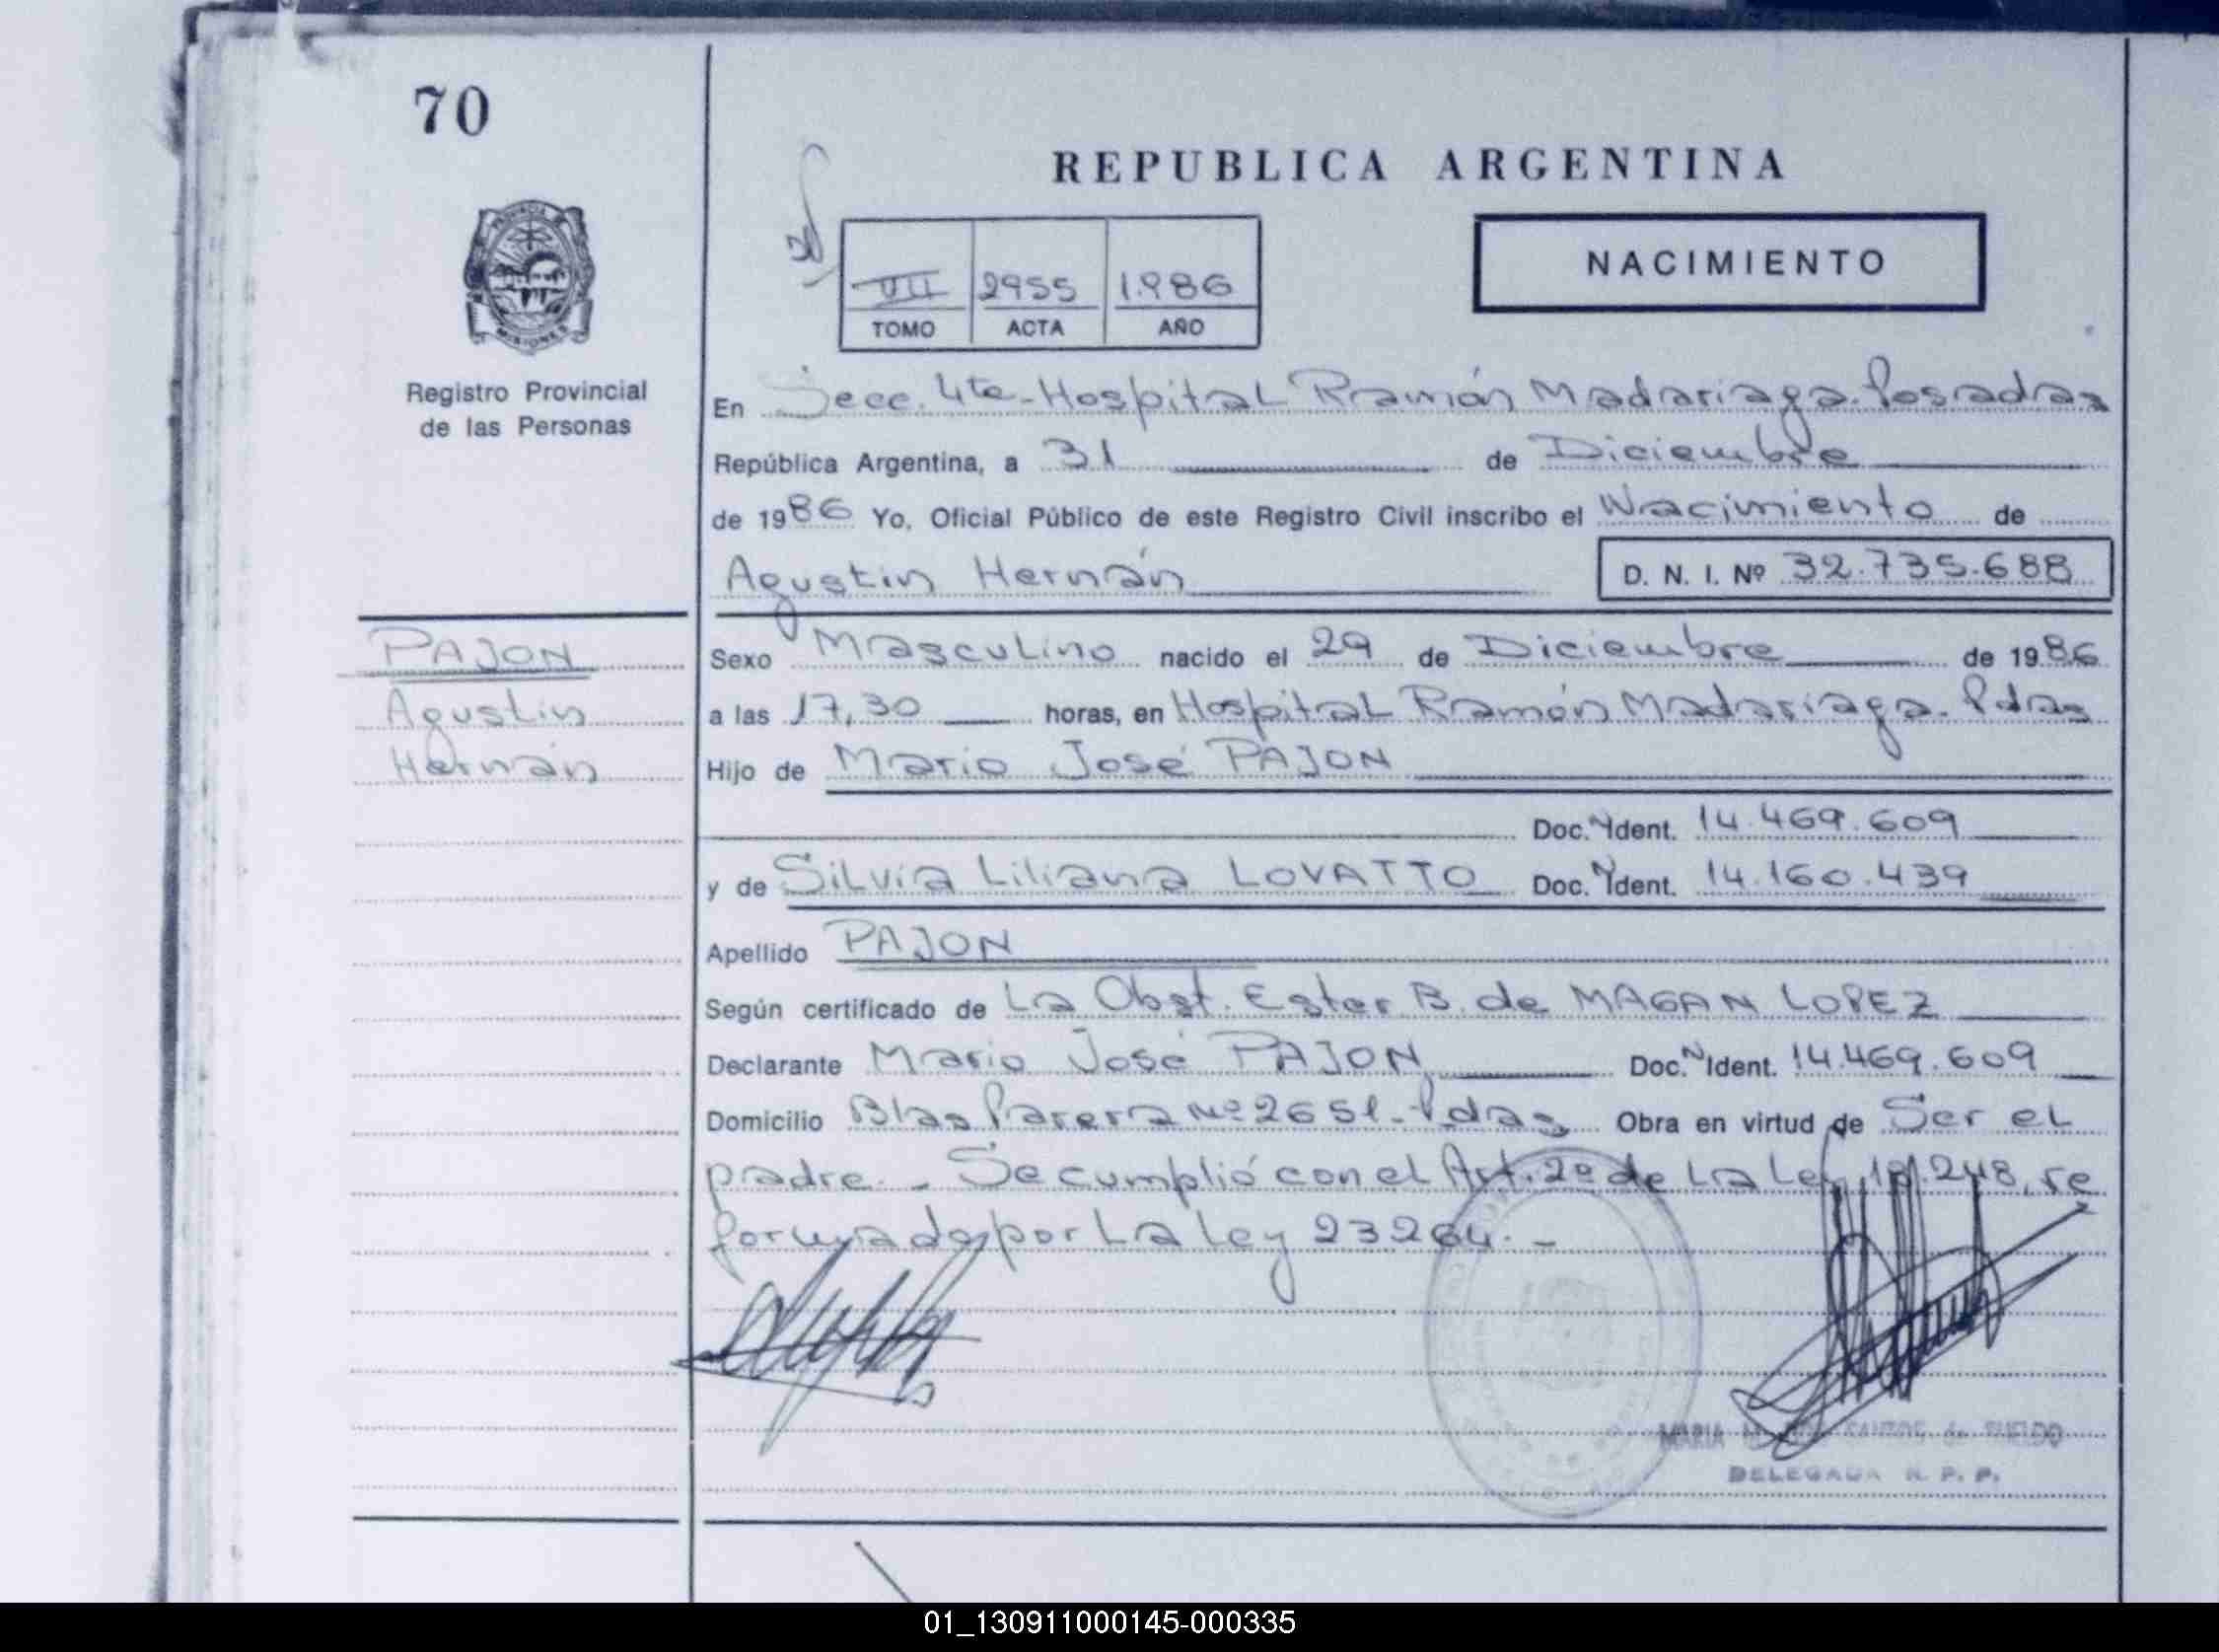 70
REPUBLICA ARGENTINA
NACIMIENTO
VII 2955 1.986
TOMO ACTA AÑO
PROVINCIA DE
MISIONES
Registro Provincial
de las Personas
En Secc. 4ta - Hospital Ramón Madariaga. Posadas
República Argentina, a 31 de Diciembre
de 1986 Yo, Oficial Público de este Registro Civil inscribo el Nacimiento de
Agustin Hernán D. N. I. Nº 32.735.688
PAJON
Agustin
Hernán
Sexo Masculino nacido el 29 de Diciembre de 1986
a las 17,30 horas, en Hospital Ramón Madariaga. Pdas
Hijo de Mario José PAJON
Doc. N Ident. 14.469.609
y de Silvia Liliana LOVATTO Doc. N Ident. 14.160.439
Apellido PAJON
Según certificado de La Obst. Ester B. de MAGAN LOPEZ
Declarante Mario José PAJON Doc. N Ident. 14.469.609
Domicilio Blas Parera Nº 2651 - Pdas Obra en virtud de Ser el
padre. - Se cumplió con el Art. 2º de La Ley 18.248, re
formado por La Ley 23264. -
MARIA SANTOS de SUELDO
DELEGADA R. P. P.
01_130911000145-000335